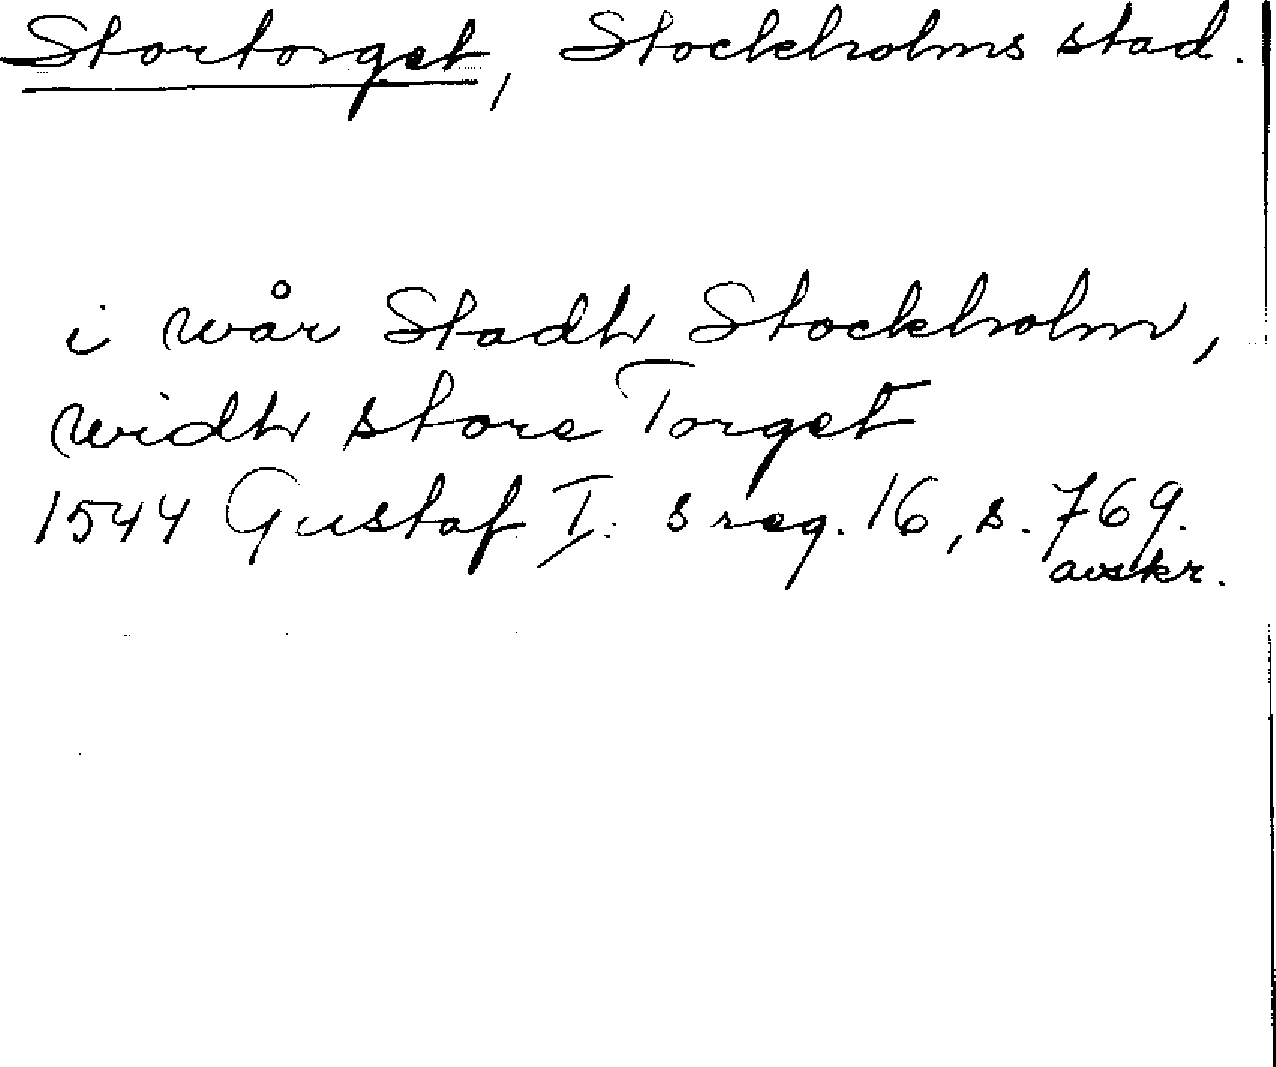 Stortorget, Stockholms stad.
i wår Stadh Stockholm,
widh store Torget
1544 Gustaf I: s reg. 16, s. 769.
avskr.